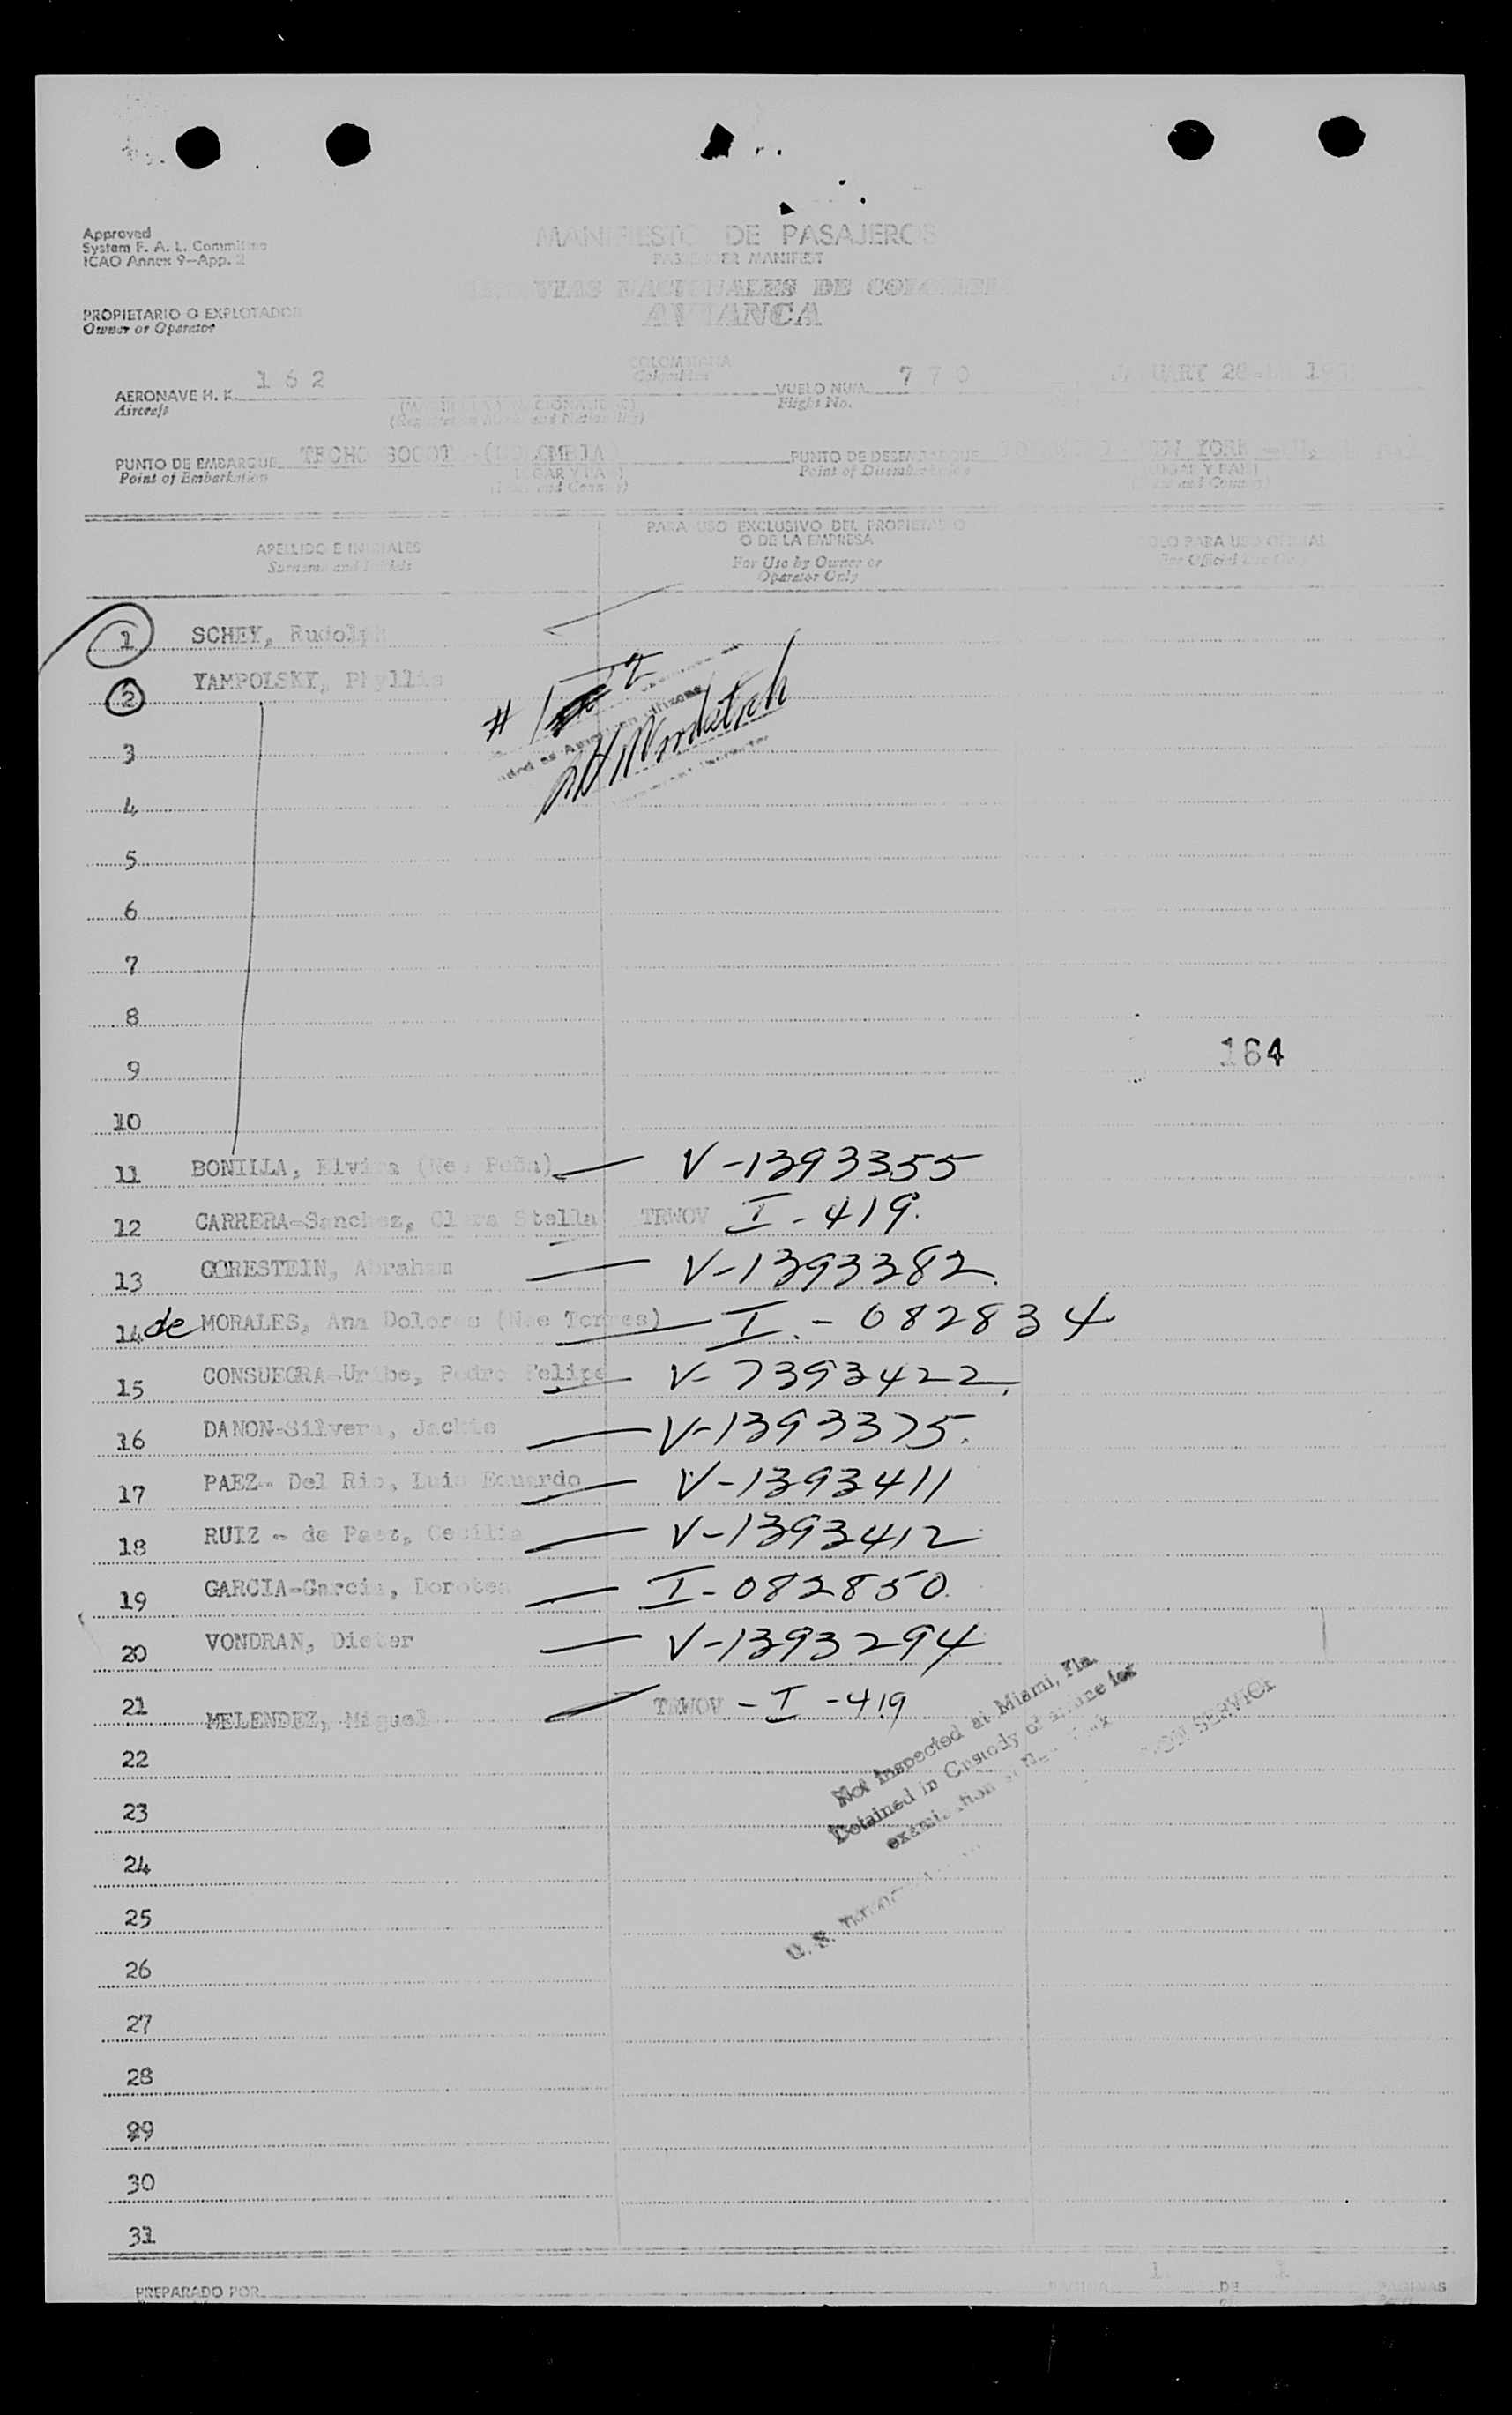 Approved
System F. A. L. Committee
ICAO Annex 9—App. 2
MANIFIESTO DE PASAJEROS
PASSENGER MANIFEST
AEROVIAS NACIONALES DE COLOMBIA
AVIANCA
PROPIETARIO O EXPLOTADOR
Owner or Operator
AERONAVE H. K. 162 COLOMBIANA VUELO NUM. 770 JANUARY
Aircraft Colombian Flight No.
PUNTO DE EMBARQUE TECHO BOGOTA (COLOMBIA) PUNTO DE DESEMBARQUE NEW YORK
Point of Embarkation LUGAR Y PAIS Point of Disembarkation LUGAR Y PAIS
APELLIDO E INICIALES
Surname and Initials
PARA USO EXCLUSIVO DEL PROPIETARIO
O DE LA EMPRESA
For Use by Owner or
Operator Only
SOLO PARA USO OFICIAL
For Official Use Only
1 SCHEY, Rudolph
2 YAMPOLSKY, Phyllis
# 1 2
as American citizens
3
4
5
6
7
8
164
9
10
11 BONILLA, Elvira (Nee Peña) V-1393355
12 CARRERA-Sanchez, Clara Stella TRWOV I-419.
13 GORESTEIN, Abraham V-1393382.
14 de MORALES, Ana Dolores (Nee Torres) I.-082834
15 CONSUEGRA-Uribe, Pedro Felipe V-7393422.
16 DANON-Silvera, Jackie V-1393375.
17 PAEZ- Del Rio, Luis Eduardo V-1393411
18 RUIZ - de Paez, Cecilia V-1393412
19 GARCIA-Garcia, Dorotea I-082850.
20 VONDRAN, Dieter V-1393294
21 MELENDEZ, Miguel TRWOV - I - 419
Not Inspected at Miami, Fla.
Detained in Custody of airline for
examination
U. S.
SERVICE
22
23
24
25
26
27
28
29
30
31
PREPARADO POR
PAGINA 1 DE 1 PAGINAS